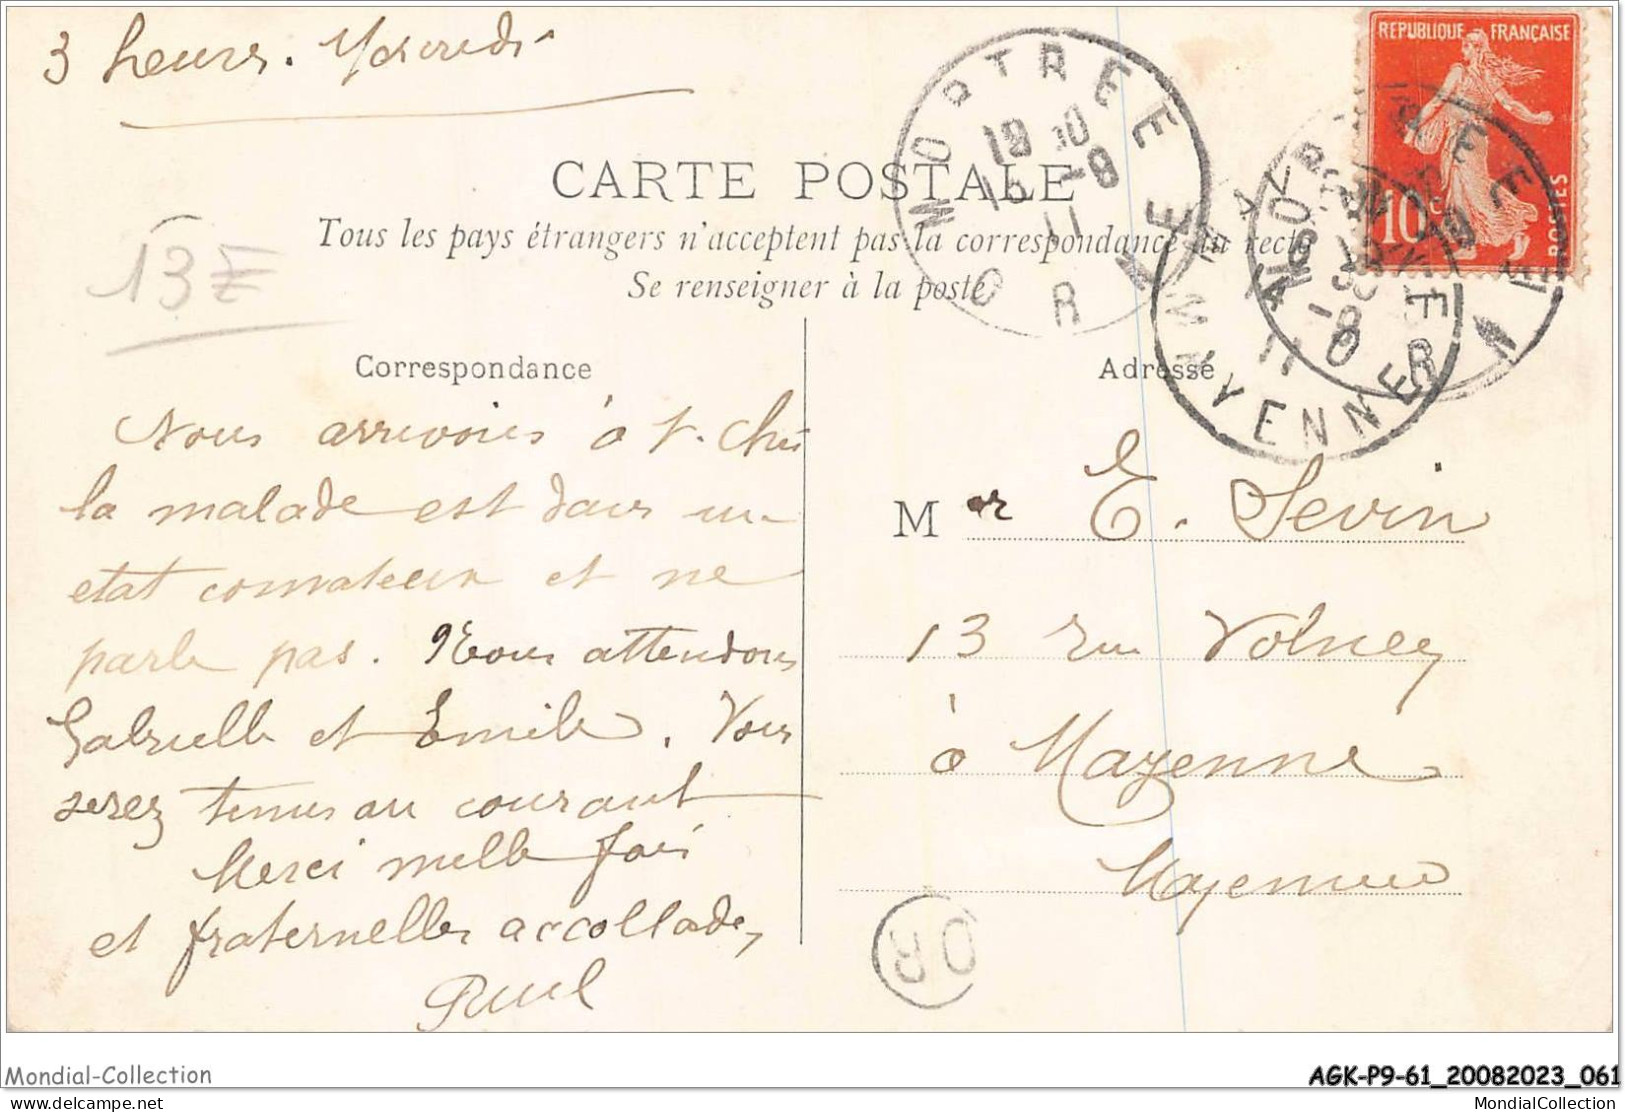 3 heures. Mercredi
REPUBLIQUE FRANÇAISE
10c
POSTES
MORTREE
18 30
15 -8
11
ORNE
CARTE POSTALE
Tous les pays étrangers n'acceptent pas la correspondance au recto
Se renseigner à la poste
13E
MAYENNE
MAYENNE
-8
11
Correspondance
Adresse
Nous arrivons à
la malade est dans un
etat comateux et ne
parle pas. Nous attendons
Gabrielle et Emile. Vous
serez tenus au courant
Merci mille fois
et fraternelles accollades,
Paul
M r E. Sevin
13 rue Volney
à Mayenne
Mayenne
OR
Mondial-Collection
AGK-P9-61_20082023_061
delcampe.net
MondialCollection